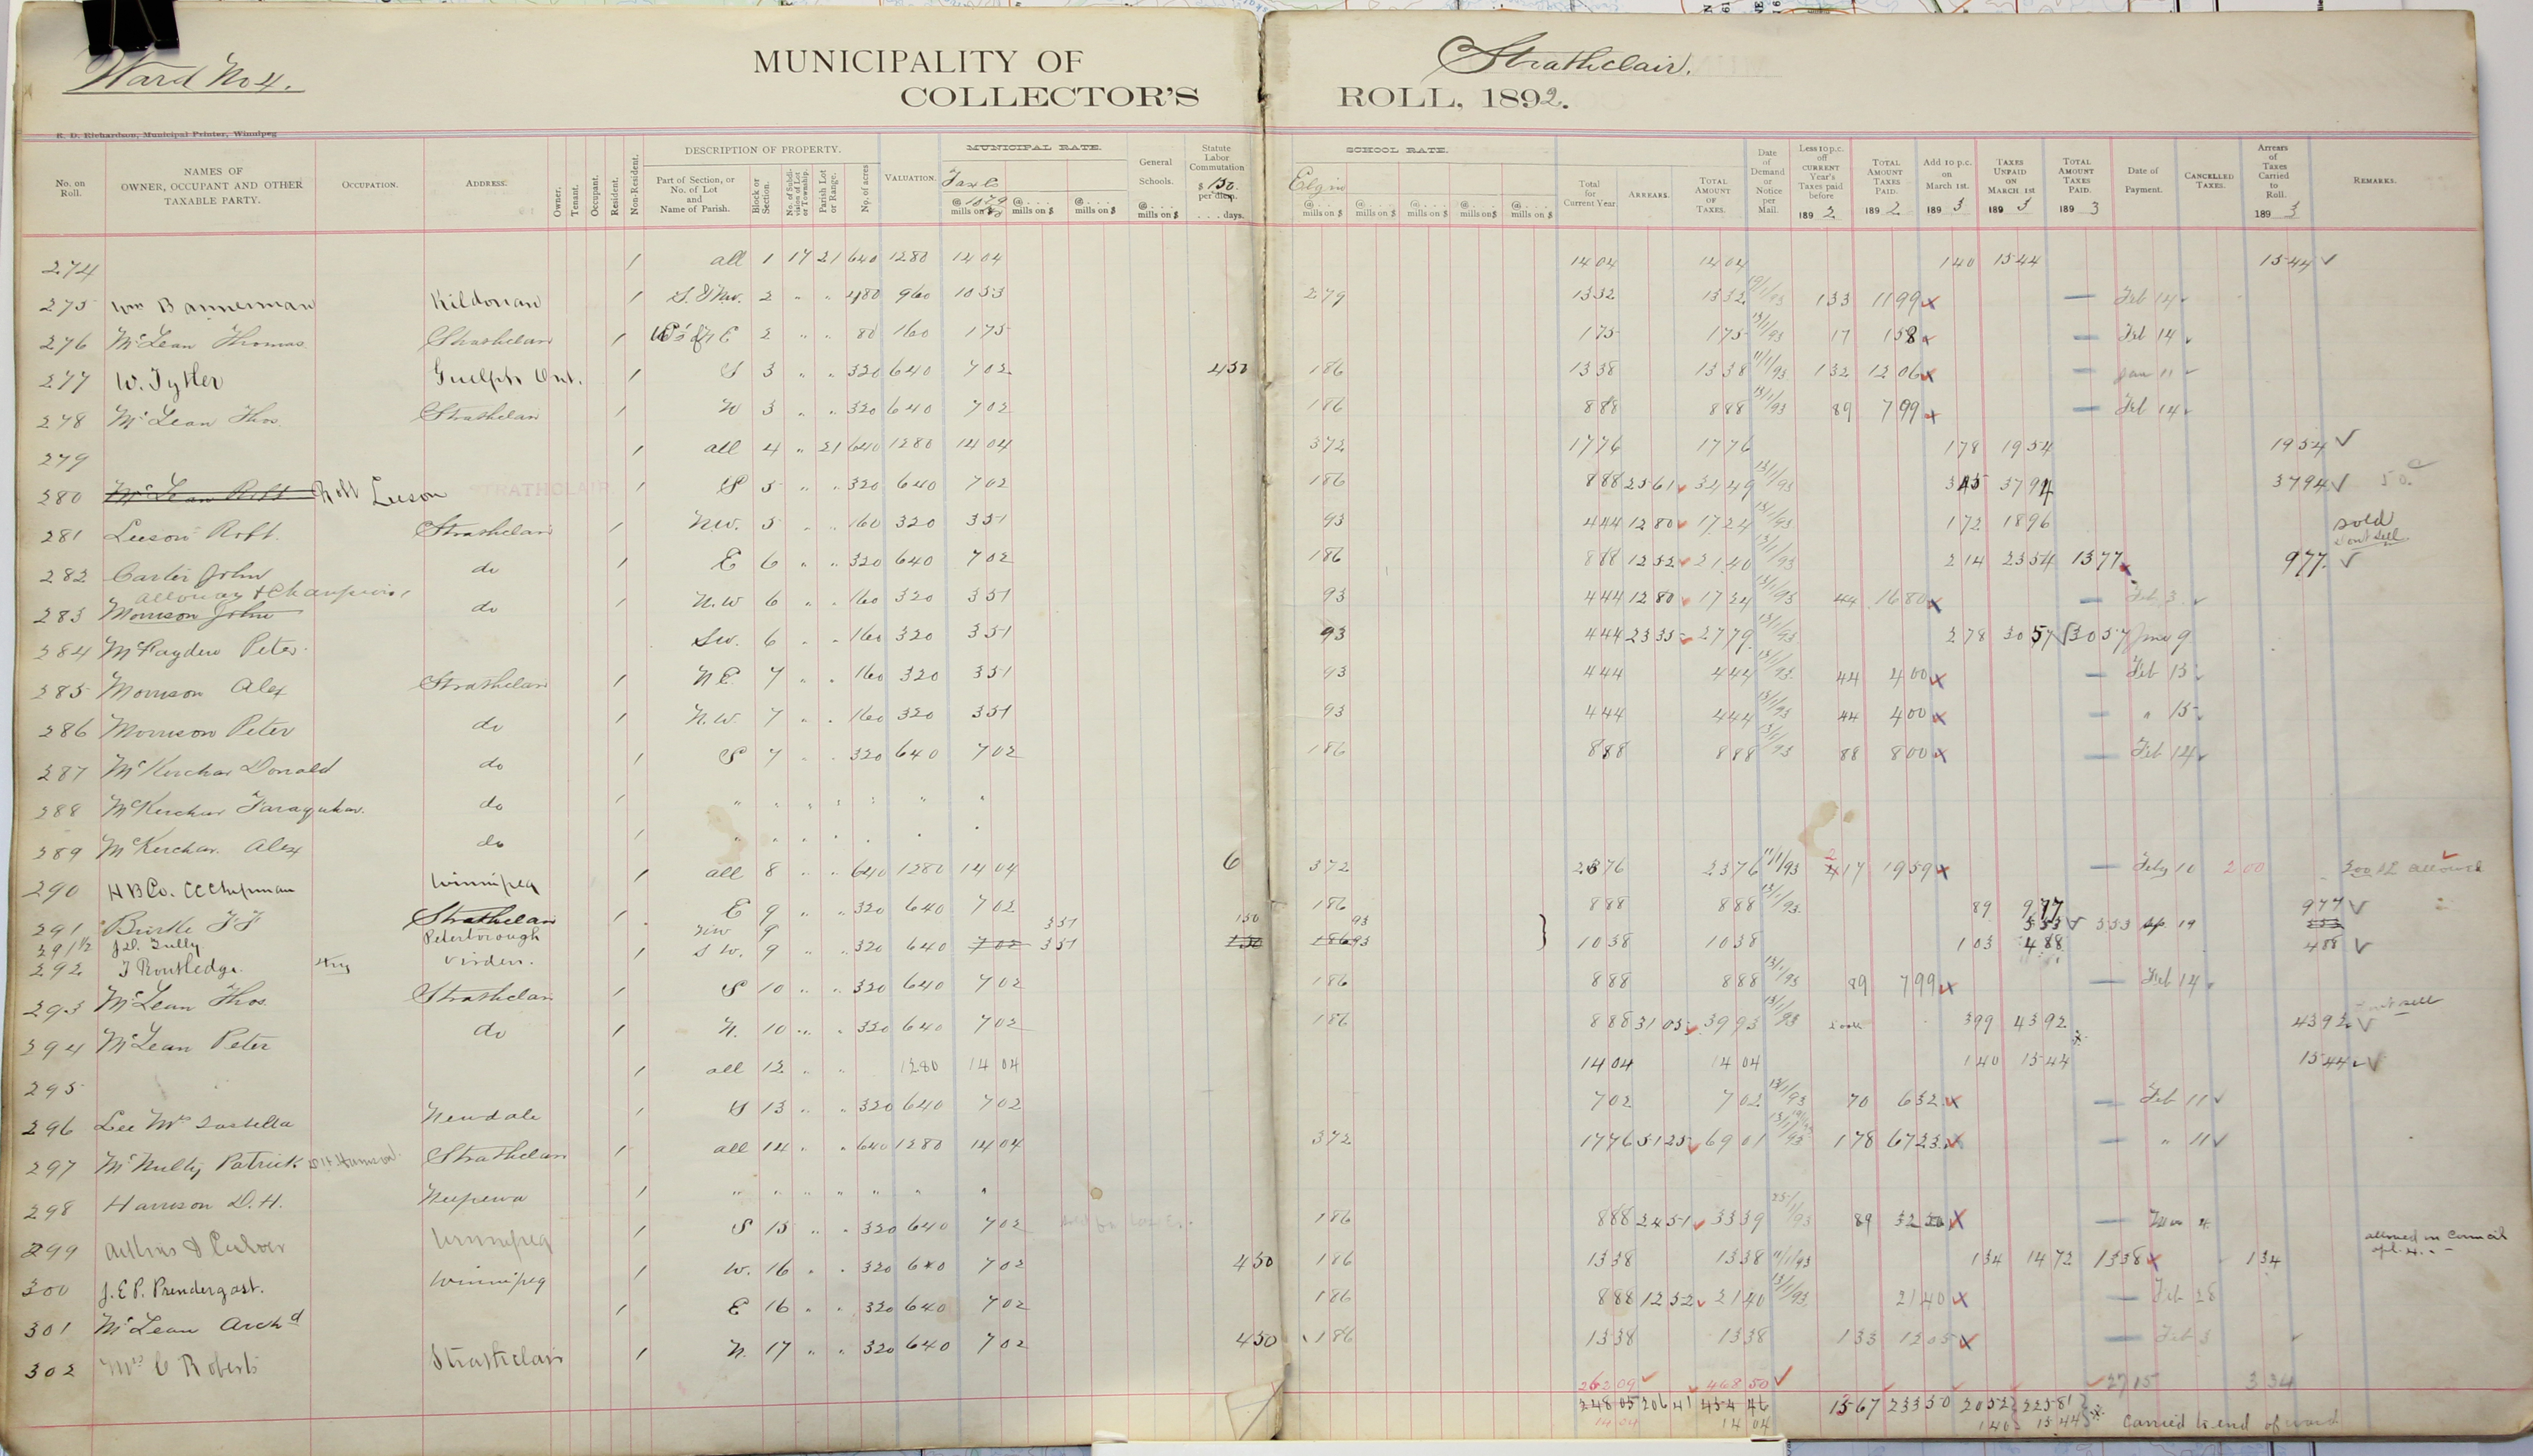 Ward No 4.
MUNICIPALITY OF Strathclair.
COLLECTOR'S ROLL, 1892.
R. D. Richardson, Municipal Printer, Winnipeg
No. on Roll. NAMES OF OWNER, OCCUPANT AND OTHER TAXABLE PARTY. OCCUPATION. ADDRESS. Owner. Tenant. Occupant. Resident. Non-Resident. DESCRIPTION OF PROPERTY. Part of Section, or No. of Lot and Name of Parish. Block or Section. No. of Subdivision of Lot or Township. Parish Lot or Range. No. of acres VALUATION. MUNICIPAL RATE. Taxes @ mills on $ @ mills on $ @ mills on $ General Schools. @ mills on $ Statute Labor Commutation $ 1.50 per diem. days. SCHOOL RATE. Elgin @ mills on $ @ mills on $ @ mills on $ @ mills on $ @ mills on $ Total for Current Year ARREARS. TOTAL AMOUNT OF TAXES. Date of Demand or Notice per Mail. Less 10 p.c. off CURRENT Year's Taxes paid before 1892 TOTAL AMOUNT TAXES PAID. 1892 Add 10 p.c. on March 1st. 1893 TAXES UNPAID ON MARCH 1ST 1893 TOTAL AMOUNT TAXES PAID. 1893 Date of Payment. CANCELLED TAXES. Arrears of Taxes Carried to Roll. 1893 REMARKS.
274 1 all 1 17 21 640 1280 14 04 14 04 14 04 1 40 15 44 15 44 ✓
275 Wm Bannerman Kildonan 1 S. & NW. 2 " " 480 960 10 53 2 79 13 32 13 32 1 33 11 99 x — Feb 14
276 McLean Thomas Strathclair 1 E 2 " " 80 160 1 75 1 75 1 75 13/1/93 17 1 58 x — Feb 14
277 W. Tytler Guelph Ont. 1 S 3 " " 320 640 7 02 4 50 1 86 13 38 13 38 11/1/93 1 32 12 06 x — Jan 11
278 McLean Thos. Strathclair 1 W 3 " " 320 640 7 02 1 86 8 88 8 88 13/1/93 89 7 99 x — Feb 14
279 1 all 4 " 21 640 1280 14 04 3 72 17 76 17 76 1 78 19 54 19 54 ✓
280 McLean Robt Robt Leeson STRATHCLAIR 1 S 5 " " 320 640 7 02 1 86 8 88 25 61 34 49 13/1/93 3 45 37 94 37 94 ✓
281 Leeson Robt. Strathclair 1 N.W. 5 " " 160 320 3 51 93 4 44 12 80 17 24 13/1/93 1 72 18 96 sold Dont sell
282 Carter John do 1 E 6 " " 320 640 7 02 1 86 8 88 12 52 21 40 13/1/93 2 14 23 54 13 77 x 9 77 ✓
Alloway & Champion
283 Morrison John do 1 N.W 6 " " 160 320 3 51 93 4 44 12 80 17 24 13/1/93 44 16 80 x — Feb 3
284 McFayden Peter SW. 6 " " 160 320 3 51 93 4 44 23 35 27 79 13/1/93 2 78 30 57 30 57 June 9
285 Morrison Alex Strathclair 1 N E 7 " " 160 320 3 51 93 4 44 4 44 13/1/93 44 4 00 x — Feb 13
286 Morrison Peter do 1 N.W. 7 " " 160 320 3 51 93 4 44 4 44 13/1/93 44 4 00 x — " 15
287 McKerchar Donald do 1 S 7 " " 320 640 7 02 1 86 8 88 8 88 13/1/93 88 8 00 x — Feb 14
288 McKerchar Faraquhar. do 1 " " " " " " "
289 McKerchar. Alex do 1 " " " " " " "
290 H B Co. CC Chipman Winnipeg 1 all 8 " " 640 1280 14 04 6 3 72 23 76 23 76 11/1/93 2 17 19 59 x — Feby 10 2 00 allowed
291 Burke Strathclair 1 E 9 " " 320 640 7 02 1 86 8 88 8 88 13/1/93 89 9 77 9 77 ✓
291½ J.D. Tully Peterborough NW 9 3 51 1 50 93 5 53 ✓ 5 53 Sep 19 5 53
292 T Routledge. Virden. 1 S W. 9 " " 320 640 7 02 3 51 1 50 1 86 93 10 38 10 38 1 03 4 88 4 88 ✓
293 McLean Thos. Strathclair 1 S 10 " " 320 640 7 02 1 86 8 88 8 88 13/1/93 89 7 99 x — Feb 14
294 McLean Peter do 1 N. 10 " " 320 640 7 02 1 86 8 88 31 05 39 93 13/1/93 3 99 43 92 43 92 ✓ sell
295 1 all 12 " " 1280 14 04 14 04 14 04 1 40 15 44 15 44 ✓
296 Lee Mrs Newdale 1 S 13 " " 320 640 7 02 7 02 7 02 13/1/93 70 6 32 x — Feb 11 ✓
297 McNulty Patrick D H Harrison. Strathclair 1 all 14 " " 640 1280 14 04 3 72 17 76 51 25 69 01 13/1/93 1 78 67 23 x — " 11 ✓
298 Harrison D. H. Neepawa 1 " " " " " " "
299 Adkins & Culver Winnipeg 1 S 15 " " 320 640 7 02 sold for taxes. 1 86 8 88 24 51 33 39 89 32 50 x —
300 J. E P. Prendergast. Winnipeg 1 W. 16 " " 320 640 7 02 4 50 1 86 13 38 13 38 11/1/93 1 34 14 72 13 38 x 1 34 allowed in Council
301 McLean Archd 1 E 16 " " 320 640 7 02 1 86 8 88 12 52 21 40 13/1/93 21 40 x — Feb 28
302 Mrs C Roberts Strathclair 1 N. 17 " " 320 640 7 02 4 50 1 86 13 38 13 38 1 33 12 05 x — Feb 3
262 09 ✓ 468 50 ✓ 27 15 3 34
248 05 206 41 454 46 15 67 233 50 20 52 225 81
14 04 14 04 1 40 15 44 Carried to end of ward